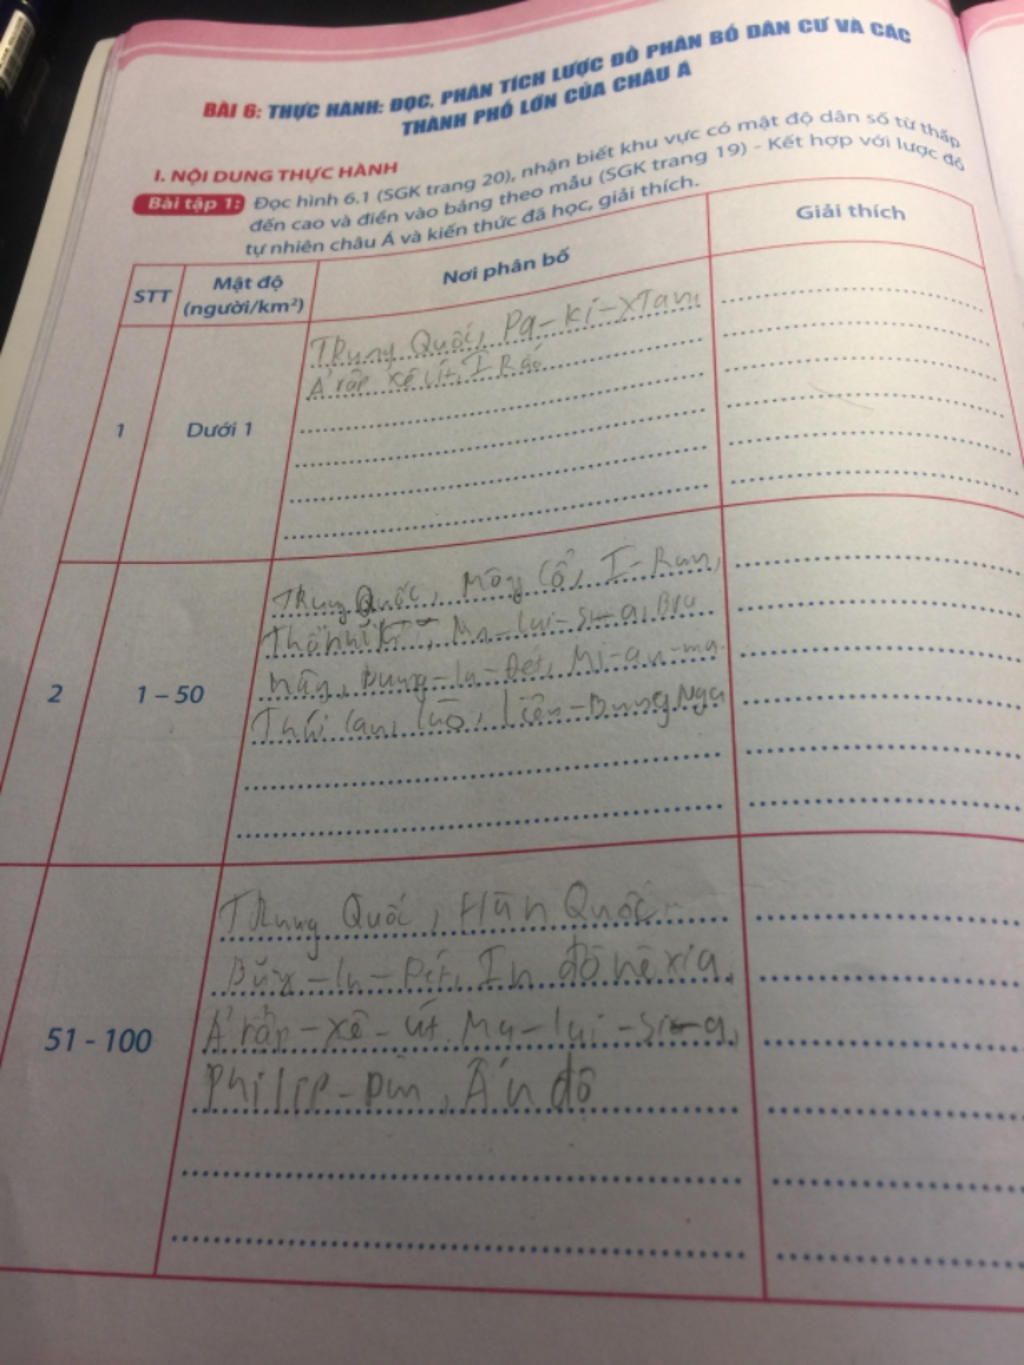 BÀI 6: THỰC HÀNH: ĐỌC, PHÂN TÍCH LƯỢC ĐỒ PHÂN BỐ DÂN CƯ VÀ CÁC
THÀNH PHỐ LỚN CỦA CHÂU Á
I. NỘI DUNG THỰC HÀNH
Bài tập 1: Đọc hình 6.1 (SGK trang 20), nhận biết khu vực có mật độ dân số từ thấp
đến cao và điền vào bảng theo mẫu (SGK trang 19) - Kết hợp với lược đồ
tự nhiên châu Á và kiến thức đã học, giải thích.
STT
Mật độ
(người/km²)
Nơi phân bố
Giải thích
1
Dưới 1
TRung Quốc, Pa-ki-XTan,
Ả rập xê út, I Rắc
2
1 – 50
TRung Quốc, Mông Cổ, I-Ran,
Thổ nhĩ kì, Ma-lai-si-a, Bru
nây, Đung-la-Đét, Mi-an-ma
Thái lan, lào, liên-Bung Nga
51 - 100
TRung Quốc, Hàn Quốc
In đô nê xia,
Ả rập-xê-út, Ma-lai-si-a,
Philip-pin, Ấn độ